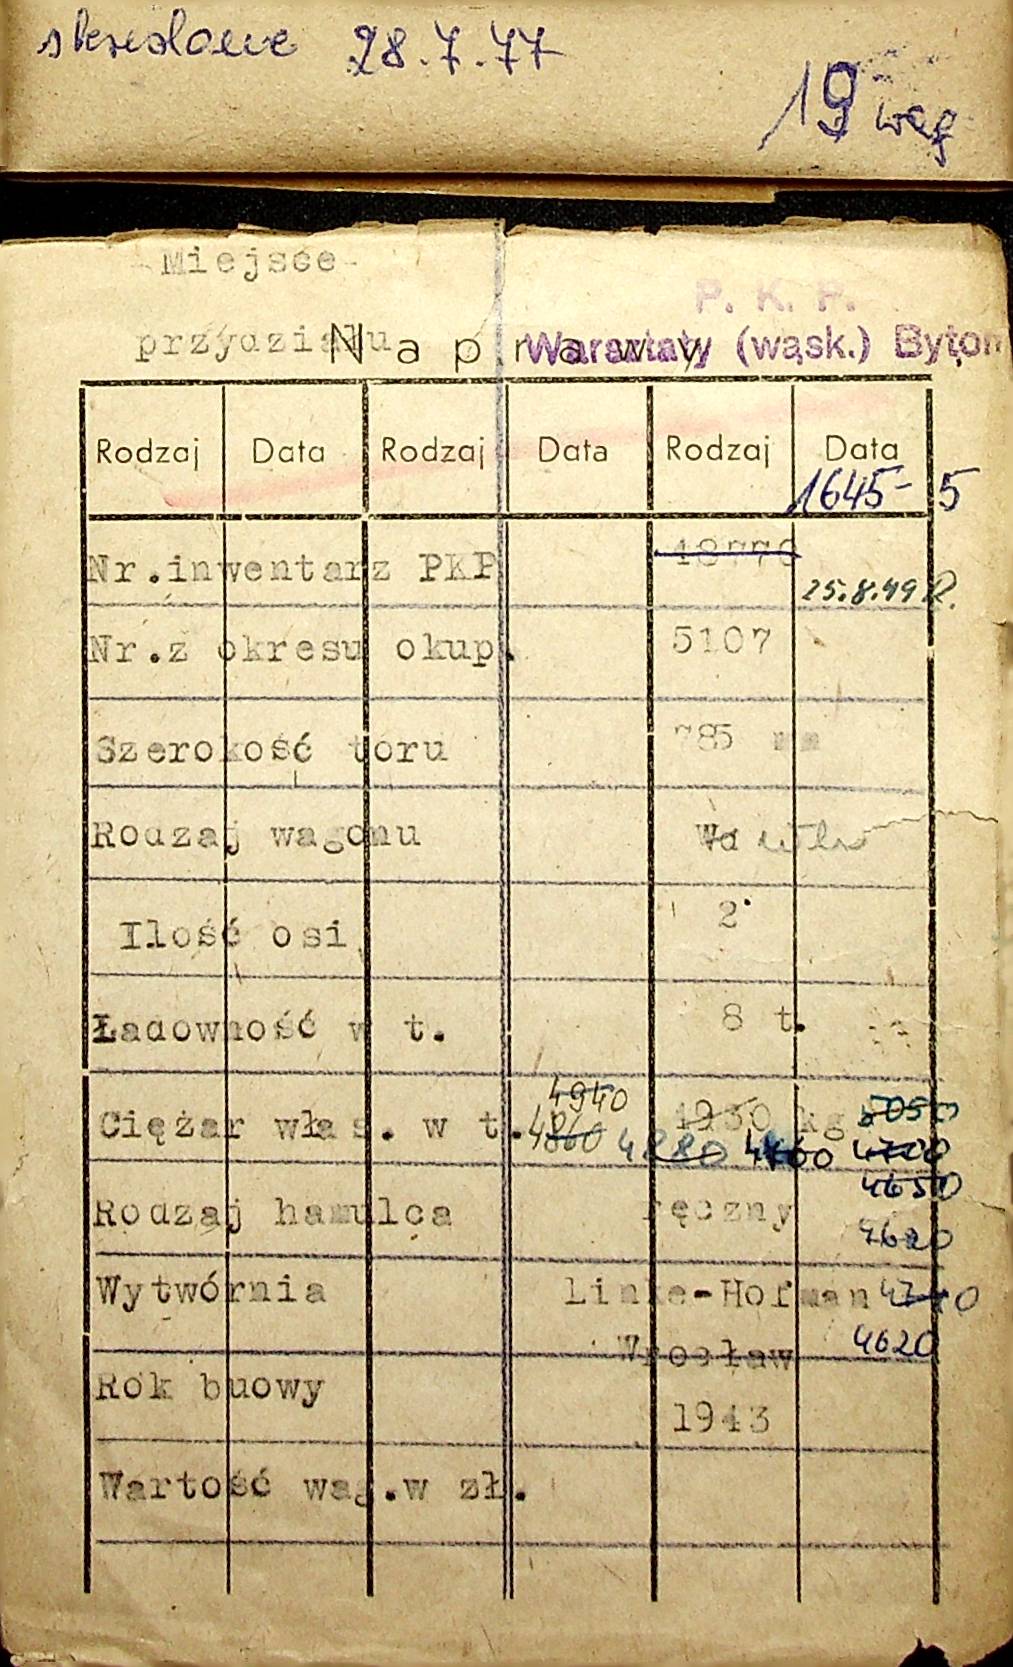 skreślone 28.7.77
19 wag
Miejsce
P. K. P.
przydziału Naprawy Warsztaty (wąsk.) Bytom
Rodzaj Data Rodzaj Data Rodzaj Data
1645-5
Nr.inwentarz PKP 18770
25.8.49
Nr.z okresu okup. 5107
Szerokość toru 785 mm
Rodzaj wagonu Wd
Ilość osi 2
Ładowność w t. 8 t.
4940
Ciężar włas. w t. 4930 kg 5050
4860 4880 4720
4650
Rodzaj hamulca ręczny
4620
Wytwórnia Linke-Hofman
Wrocław 4620
Rok buowy
1943
Wartość wag.w zł.